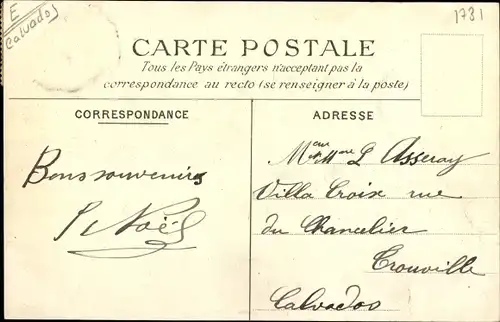 E
Calvados
1731
CARTE POSTALE
Tous les Pays étrangers n'acceptant pas la
correspondance au recto (se renseigner à la poste)
CORRESPONDANCE
Bons souvenirs
Noël
ADRESSE
Meur et Mme L Asseray
Villa Croix rue
du Chancelier
Trouville
Calvados